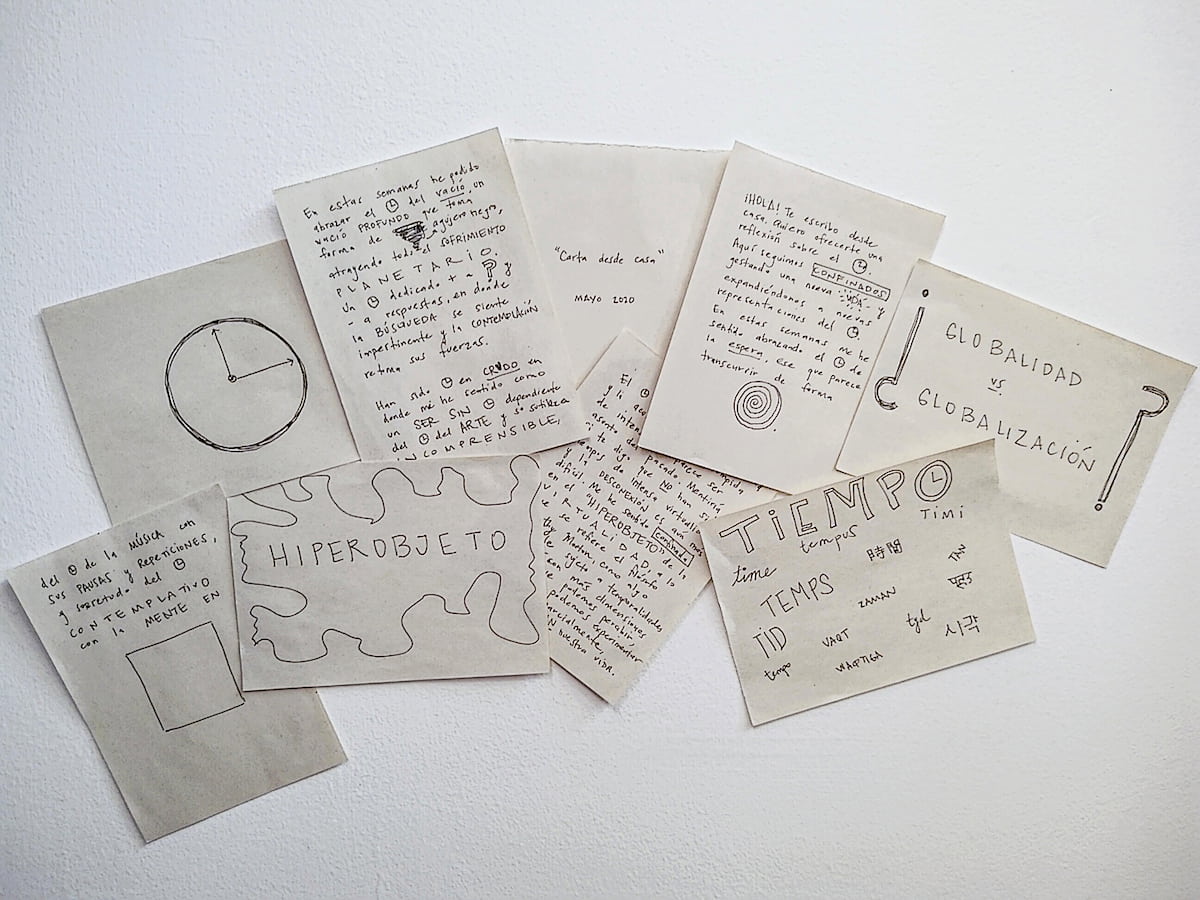 En estas semanas he podido
abrazar el del vació, un
vació PROFUNDO que toma
forma de agujero negro,
atrayendo todo el SOFRIMIENTO
PLANETARIO.
Un dedicado + a ? y
- a respuestas, en donde
la BÚSQUEDA se siente
impertinente y la CONTEMPLACIÓN
retoma sus fuerzas.
Han sido en CRUDO en
donde me he sentido como
un SER SIN dependiente
del del ARTE y so sutileza
INCOMPRENSIBLE,
"Carta desde casa"
MAYO 2020
¡HOLA! Te escribo desde
casa. Quiero ofrecerte una
reflexión sobre el
Aquí seguimos CONFINADOS
gestando una nueva VIDA y
expandiéndonos a nuevas
representaciones del
En estas semanas me he
sentido abrazando el de
la espera, ese que parece
transcurrir de forma
¿GLOBALIDAD
vs.
GLOBALIZACIÓN?
del de la MÚSICA con
sus PAUSAS y REPETICIONES,
y sobretodo del
CONTEMPLATIVO
con la MENTE EN
HIPEROBJETO
El
y la
de inten
asento del pasado. Mentiría
si te digo que NO han si
de intensa virtualid
y la DESCONEXIÓN es aún más
difícil. Me he sentido confinada
en el "HIPEROBJETO" de la
VIRTUALIDAD, a lo
se refiere el filósofo
Morton, como algo
sujeto a temporalidades
con más dimensiones
que podemos percibir,
podemos experimentar
parcialmente,
EN nuestra vida.
TIEMPO
TIMI
tempus
time
時間
TEMPS
ZAMAN
TID
VAQT
tyd
시각
tempo
WAQTIGA